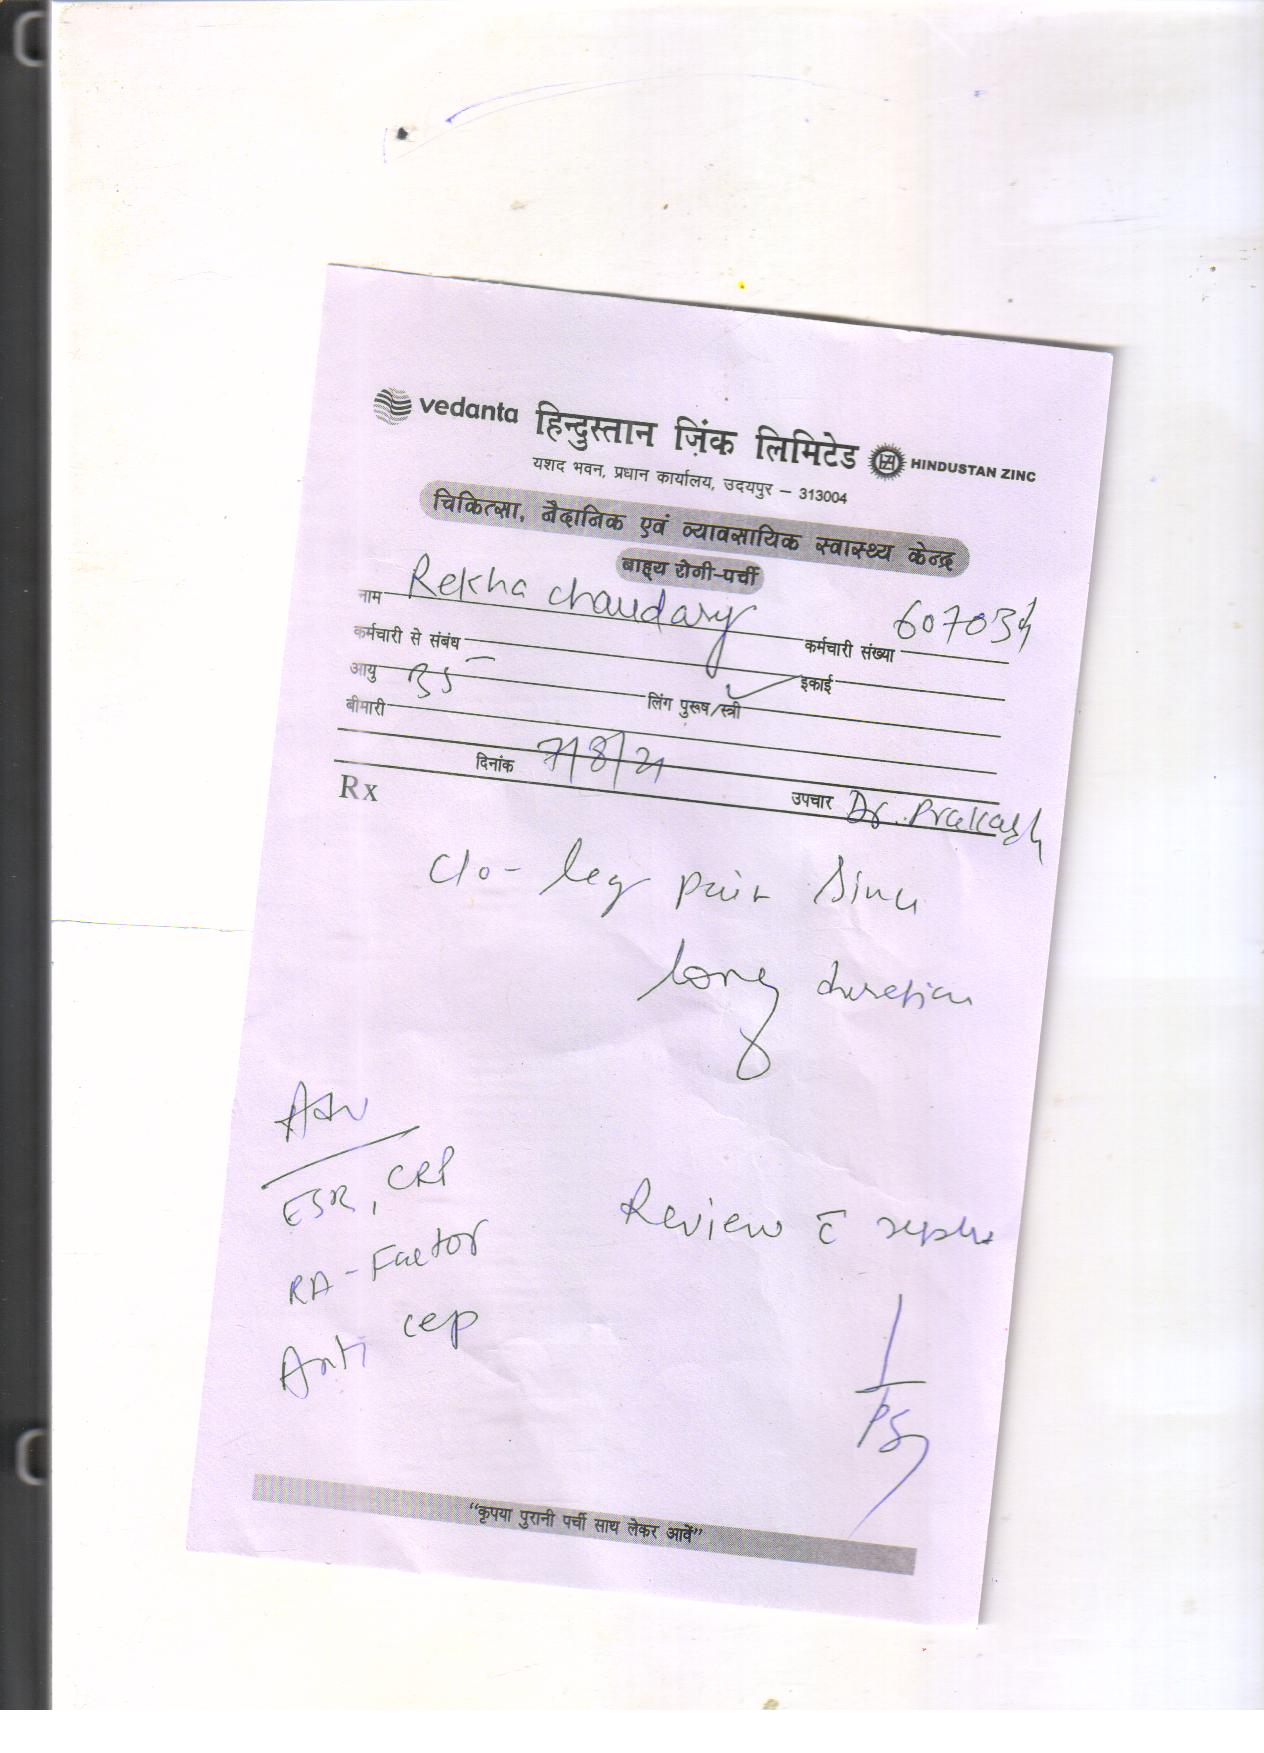 vedanta हिन्दुस्तान ज़िंक लिमिटेड HINDUSTAN ZINC
यशद भवन, प्रधान कार्यालय, उदयपुर – 313004
चिकित्सा, नैदानिक एवं व्यावसायिक स्वास्थ्य केन्द्र
बाह्य रोगी-पर्ची
नाम Rekha chaudary कर्मचारी संख्या 607034
कर्मचारी से संबंध इकाई
आयु 35 लिंग पुरूष/स्त्री
बीमारी
दिनांक 7/8/21 उपचार Dr. Prakash
Rx
c/o - leg pain since
long duration
Adv
ESR, CRP
RA - Factor
Anti ccp
Review c̄ reports
"कृपया पुरानी पर्ची साथ लेकर आवें"